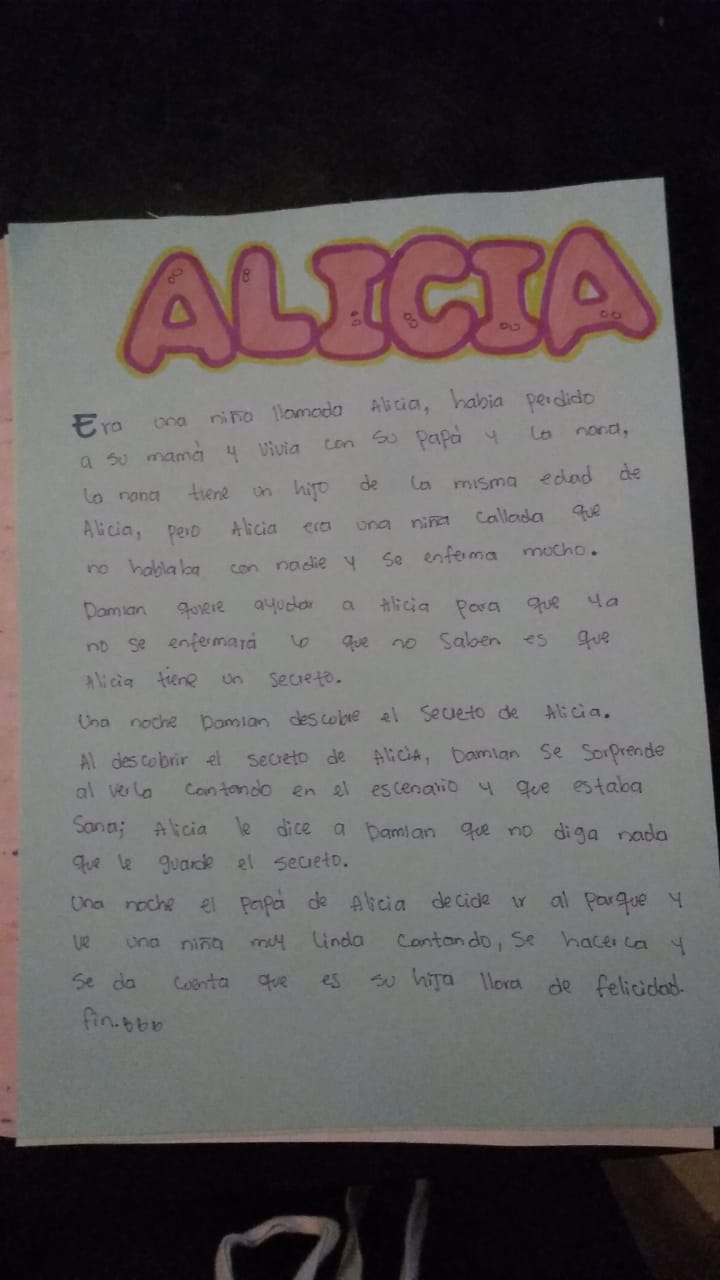 ALICIA
Era una niña llamada Alicia, habia perdido
a su mamá y vivia con su papá y la nana,
la nana tiene un hijo de la misma edad de
Alicia, pero Alicia era una niña callada que
no hablaba con nadie y se enferma mucho.
Damian quiere ayudar a Alicia para que ya
no se enfermará lo que no saben es que
Alicia tiene un secreto.
Una noche Damian descubre el secreto de Alicia.
Al descubrir el secreto de Alicia, Damian se sorprende
al verla cantando en el escenario y que estaba
sana; Alicia le dice a Damian que no diga nada
que le guarde el secreto.
Una noche el papá de Alicia decide ir al parque y
ve una niña muy linda cantando, se hacerca y
se da cuenta que es su hija llora de felicidad.
fin.